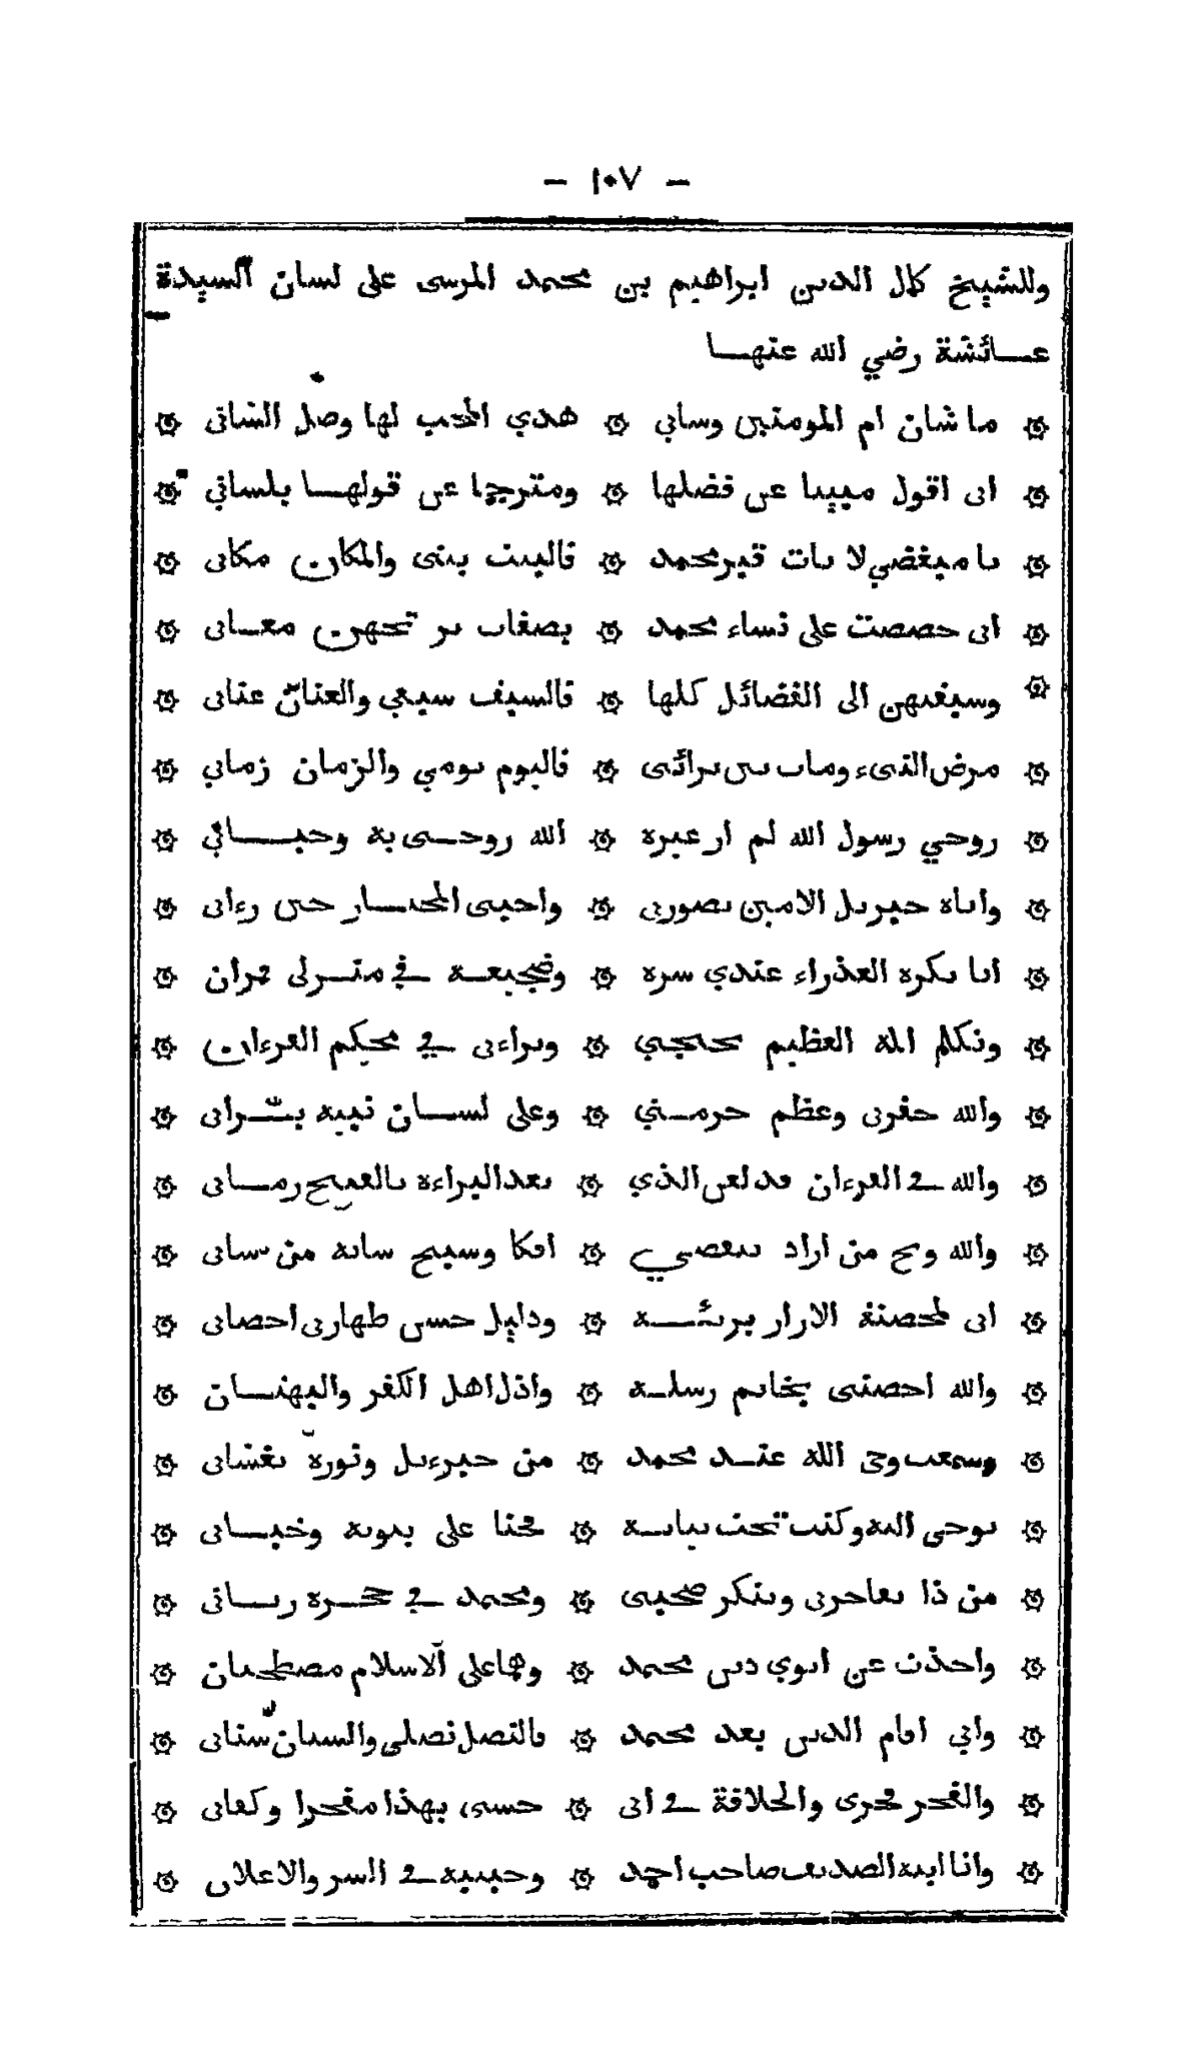 - ١٠٧ -
وللشيخ كمال الدين ابراهيم بن محمد المرسى على لسان السيدة
عـائشة رضي الله عنهـا
۞ ما شان ام المومنين وساني ۞ هدي المحب لها وضل الشانى ۞
۞ انى اقول مبينا عن فضلها ۞ ومترجما عن قولهـا بلساني ۞
۞ يا مبغضي لا تات قبر محمد ۞ فالبيت بيتى والمكان مكانى ۞
۞ انى خصصت على نساء محمد ۞ بصفات بر تحتهن معـانى ۞
۞ وسبقتهن الى الفضائل كلها ۞ فالسبق سبقي والعنان عنانى ۞
۞ مرض النبىء ومات بين ترائبى ۞ فاليوم يومي والزمان زماني ۞
۞ روجي رسول الله لم ار غيره ۞ الله زوجـنى به وحبـاني ۞
۞ واتاه جبريل الامين بصورتى ۞ واحبنى المختـار حين رءانى ۞
۞ انا بكره العذراء عندي سره ۞ وضجيعـه في منـزلى قمران ۞
۞ وتكلم الله العظيم بحجتي ۞ وبراءتى في محكم القرءان ۞
۞ والله حفرنى وعظم حرمـتي ۞ وعلى لسـان نبيه بـرانى ۞
۞ والله في القرءان قد لعن الذي ۞ بعد البراءة بالقبيح رمـانى ۞
۞ والله وبح من اراد تنقصي ۞ افكا وسبح شانه من شانى ۞
۞ انى لمحصنة الازار بريئـة ۞ ودليل حسن طهارتى احصانى ۞
۞ والله احصننى بخاتم رسلـه ۞ واذل اهل الكفر والبهتـان ۞
۞ وسمعت وحى الله عنـد محمد ۞ من جبرءيل ونوره يغشانى ۞
۞ يوحى اليه وكنت تحت ثيابـه ۞ فحنا على بثوبه وخبـانى ۞
۞ من ذا يفاخرنى وينكر صحبتى ۞ ومحمد في حجـره ربـانى ۞
۞ واخذت عن ابوي دين محمد ۞ وهما على الاسلام مصطحبان ۞
۞ وابي اقام الدين بعد محمد ۞ فالنصل نصلى والسنان سنانى ۞
۞ والفخر فخرى والخلافة في ابى ۞ حسبى بهذا مفخرا وكفانى ۞
۞ وانا ابنة الصديق صاحب احمد ۞ وحبيبه في السر والاعلان ۞